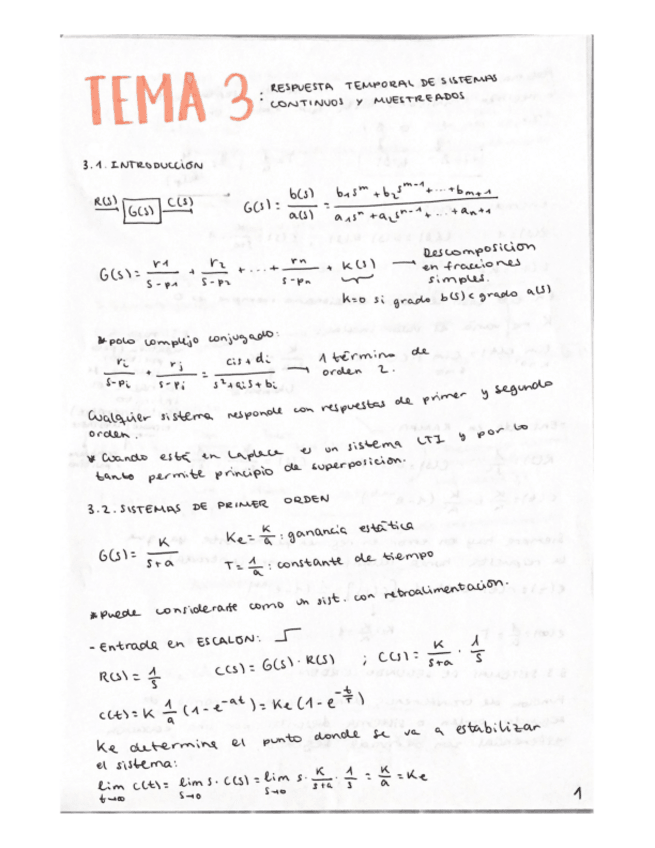 TEMA 3: RESPUESTA TEMPORAL DE SISTEMAS
CONTINUOS Y MUESTREADOS
3.1. INTRODUCCIÓN
R(s) → [G(s)] → C(s)    G(s) = b(s)/a(s) = (b₁s^m + b₂s^(m-1) + ... + b_(m+1))/(a₁s^n + a₂s^(n-1) + ... + a_(n+1))
G(s) = r1/(s-p1) + r2/(s-p2) + ... + rn/(s-pn) + k(s) → Descomposición
en fracciones
simples.
k=0 si grado b(s) < grado a(s)
* polo complejo conjugado:
ri/(s-pi) + rj/(s-pj) = (cis+di)/(s²+ais+bi) → 1 término de
orden 2.
Cualquier sistema responde con respuestas de primer y segundo
orden.
* Cuando está en Laplace es un sistema LTI y por lo
tanto permite principio de superposición.
3.2. SISTEMAS DE PRIMER ORDEN
G(s) = K/(s+a)    Ke = K/a : ganancia estática
T = 1/a : constante de tiempo
* Puede considerarse como un sist. con retroalimentación.
- Entrada en ESCALON:
R(s) = 1/s    C(s) = G(s) · R(s) ; C(s) = K/(s+a) · 1/s
c(t) = K 1/a (1-e^(-at)) = Ke (1-e^(-t/T))
Ke determina el punto donde se va a estabilizar
el sistema:
lim t→∞ c(t) = lim s→0 s · C(s) = lim s→0 s · K/(s+a) · 1/s = K/a = Ke
1